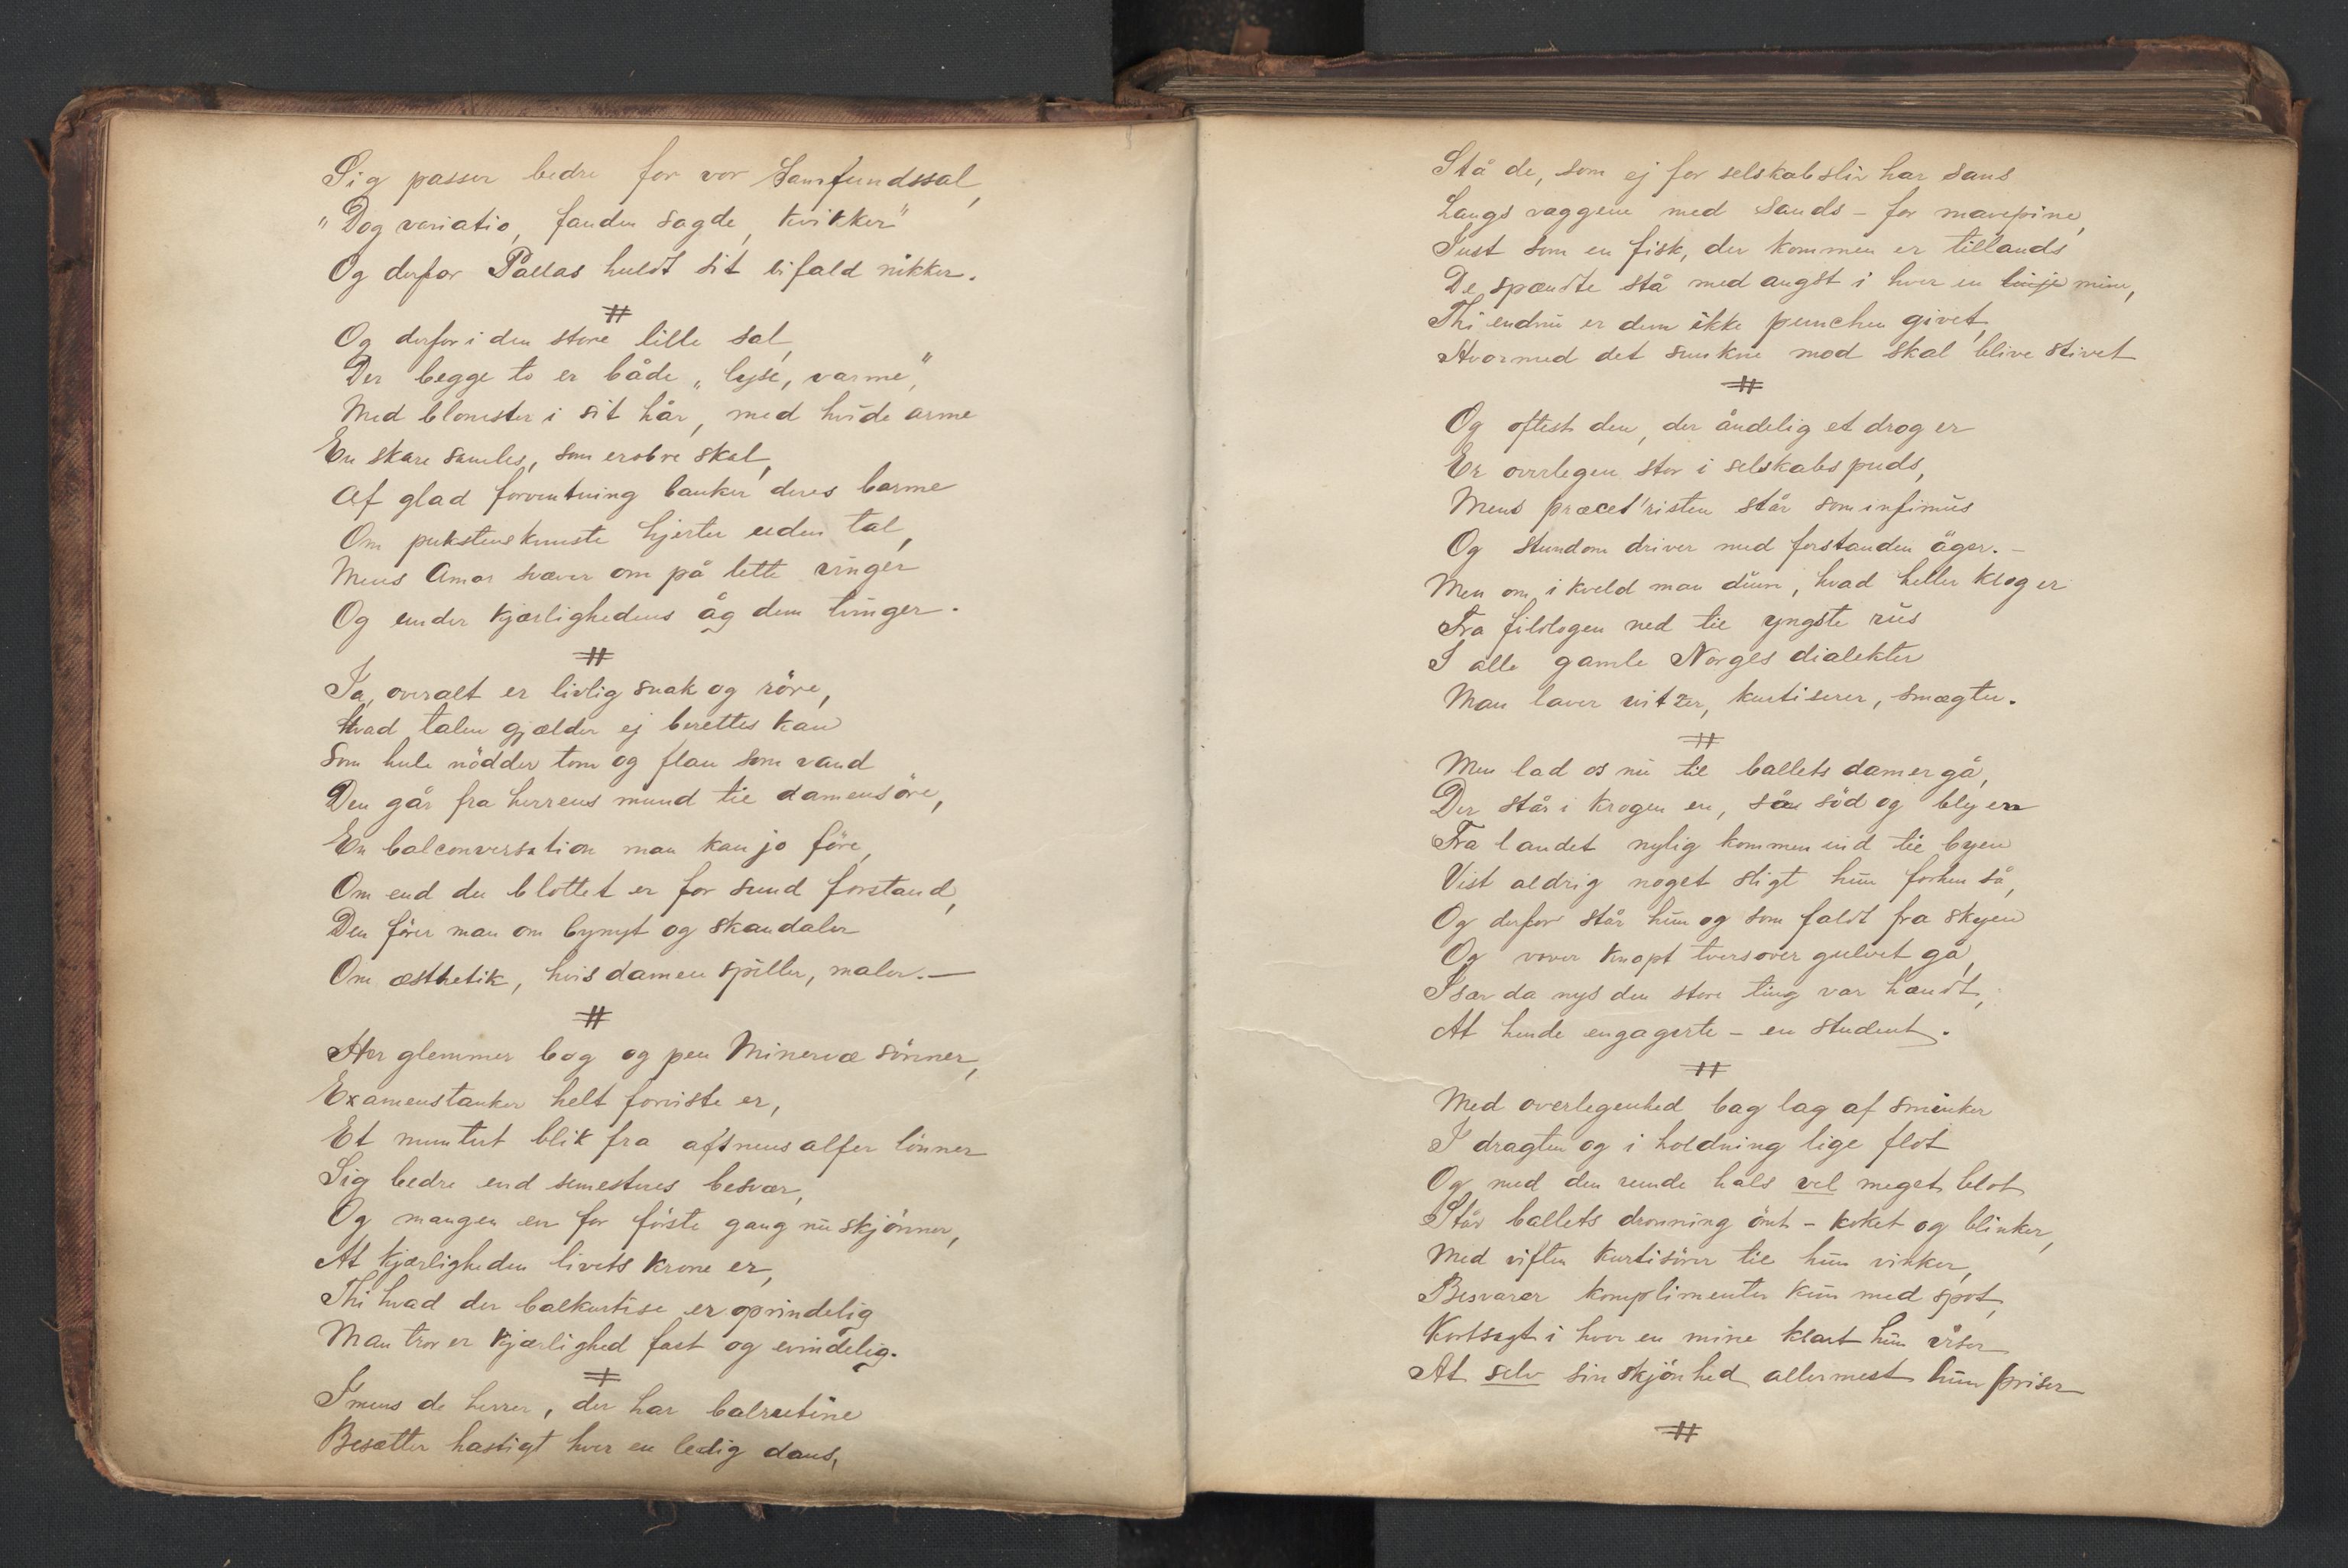 Sig passer bedre for vor Samfundssal,
"Dog variatio, fanden sagde, kvikker"
Og derfor Pallas huldt sit bifald nikker.
#
Og derfor i den store lille sal,
Der begge to er både "lyse, varme",
Med blomster i sit hår, med hvide arme
En skare samles, som erobre skal,
Af glad forventning banker deres barme
Om pukstenskunste hjerter uden tal,
Mens Amor svæver om på lette vinger
Og under kjærlighedens åg dem tvinger.
#
Ja, overalt er livlig snak og röre,
Hvad talen gjælder ej berettes kan
Som hule nödder tom og flau som vand
Den går fra herrens mund til damens öre,
En balconversation man kan jo före,
Om end den blottet er for sund forstand,
Den förer man om bynyt og skandaler
Om æsthetik, hvis damen spiller, maler. —
#
Her glemmer bog og pen Minervæ sönner,
Examenstanker helt forviste er,
Et muntert blik fra aftnens alfer lönner
Sig bedre end semestrets besvær,
Og mangen en for förste gang nu skjönner,
At kjærligheden livets krone er,
Thi hvad der balkurtise er oprindelig
Man tror er kjærlighed fast og evindelig.
#
Imens de herrer, der har balrutine
Besætter hastigt hver en ledig dans,
Stå de, som ej for selskabsliv har sans
Langs væggene med sands - for mavepine,
Just som en fisk, der kommen er tillands
De spændte stå med angst i hver en linje mine,
Thi endnu er dem ikke punchen givet,
Hvormed det sunkne mod skal blive stivet
#
Og oftest den, der åndelig et drog er
Er overlegen stor i selskabspuds,
Mens præcet'risten står som infimus
Og stundom driver med forstanden åger. -
Men om i kveld man dum, hvad heller klog er
Fra filologen ned til yngste rus
I alle gamle Norges dialekter
Man laver vitzer, kurtiserer, smægter.
#
Men lad os nu til ballets damer gå,
Der står i krogen en, så söd og bly er
Fra landet nylig kommen ind til byen
Vist aldrig noget sligt hun forhen så,
Og derfor står hun og som faldt fra skyen
Og vover knapt tversover gulvet gå,
Især da nys den store ting var hændt,
At hende engagerte - en student.
#
Med overlegenhed bag lag af sminker
I dragten og i holdning lige flot
Og med den runde hals vel meget blot
Står ballets dronning ömt - koket og blinker,
Med viften kurtisörer til hun vinker,
Besvarer komplimenter kun med spot,
Kortsagt i hver en mine klart hun viser
At selv sin skjönhed allermest hun priser
#